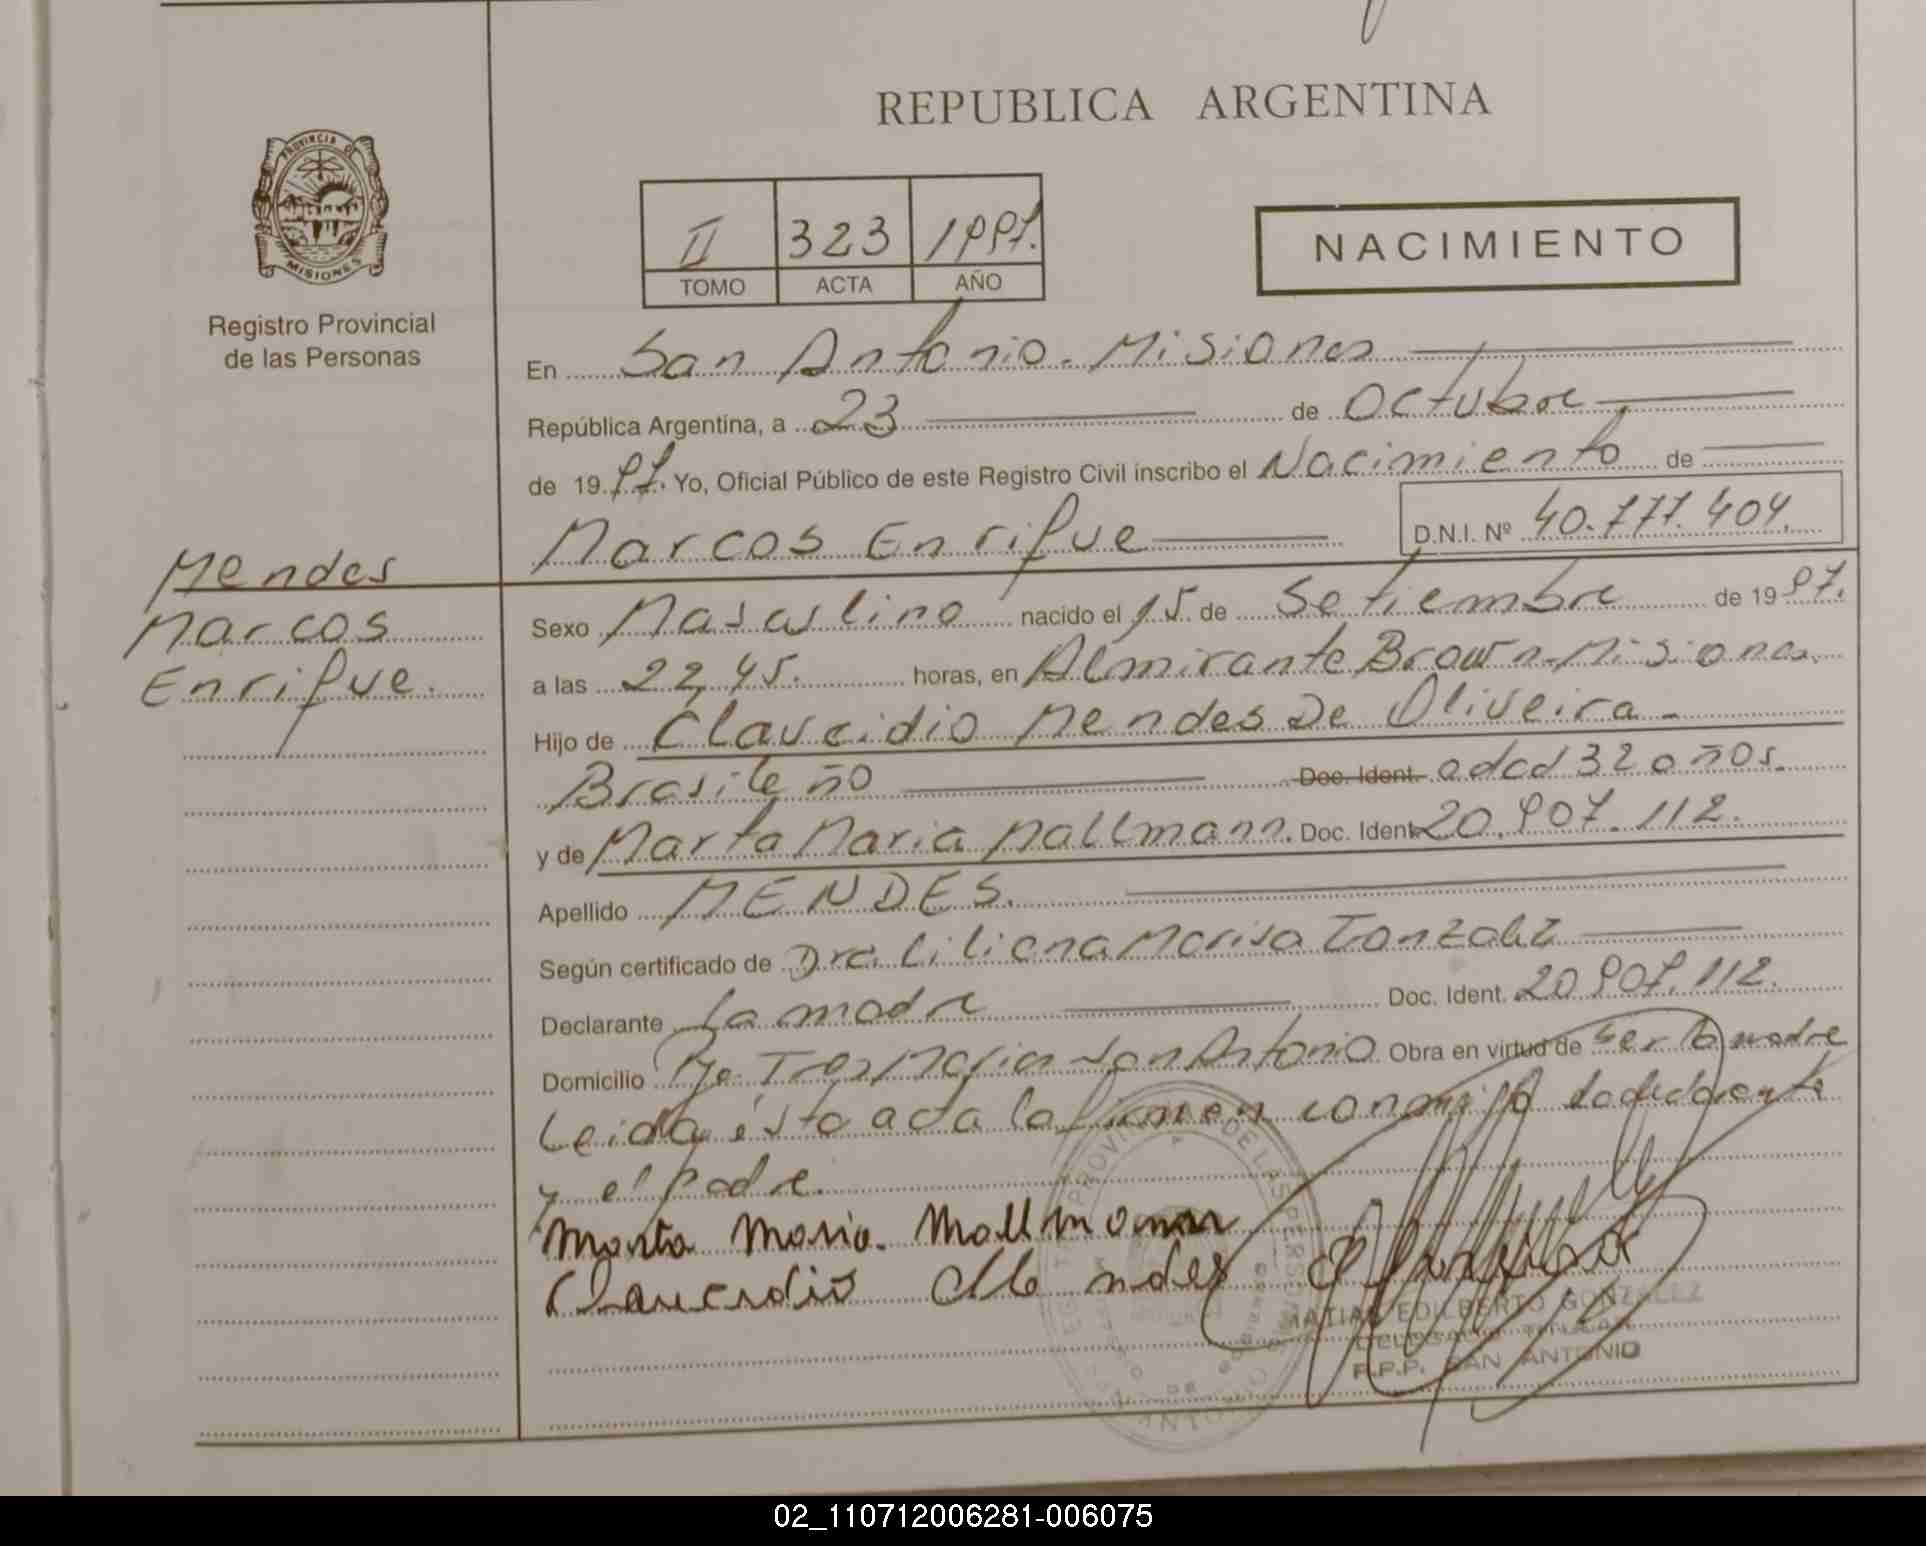 REPUBLICA ARGENTINA
PROVINCIA DE
MISIONES
Registro Provincial
de las Personas
II 323 1997.
TOMO ACTA AÑO
NACIMIENTO
En San Antonio - Misiones
República Argentina, a 23 de Octubre
de 1997. Yo, Oficial Público de este Registro Civil inscribo el Nacimiento de
Marcos Enrique D.N.I. Nº 40.777.404.
Mendes
Marcos
Enrique.
Sexo Masculino nacido el 15 de Setiembre de 1997.
a las 22,45. horas, en Almirante Brown - Misiones.
Hijo de Claucidio Mendes De Oliveira -
Brasileño Doc. Ident. edad 32 años.
y de Marta Maria Mallmann. Doc. Ident. 20.907.112.
Apellido MENDES.
Según certificado de Dra. Liliana Marisa Gonzalez
Declarante La madre Doc. Ident. 20.907.112.
Domicilio San Antonio Obra en virtud de ser la madre
Leida ésta acta la firman conmigo
y el padre.
Marta Maria. Mallmann
Claucidio Mendes
MATIAS EDILBERTO GONZALEZ
DELEGADO TITULAR
R.P.P. SAN ANTONIO
02_110712006281-006075